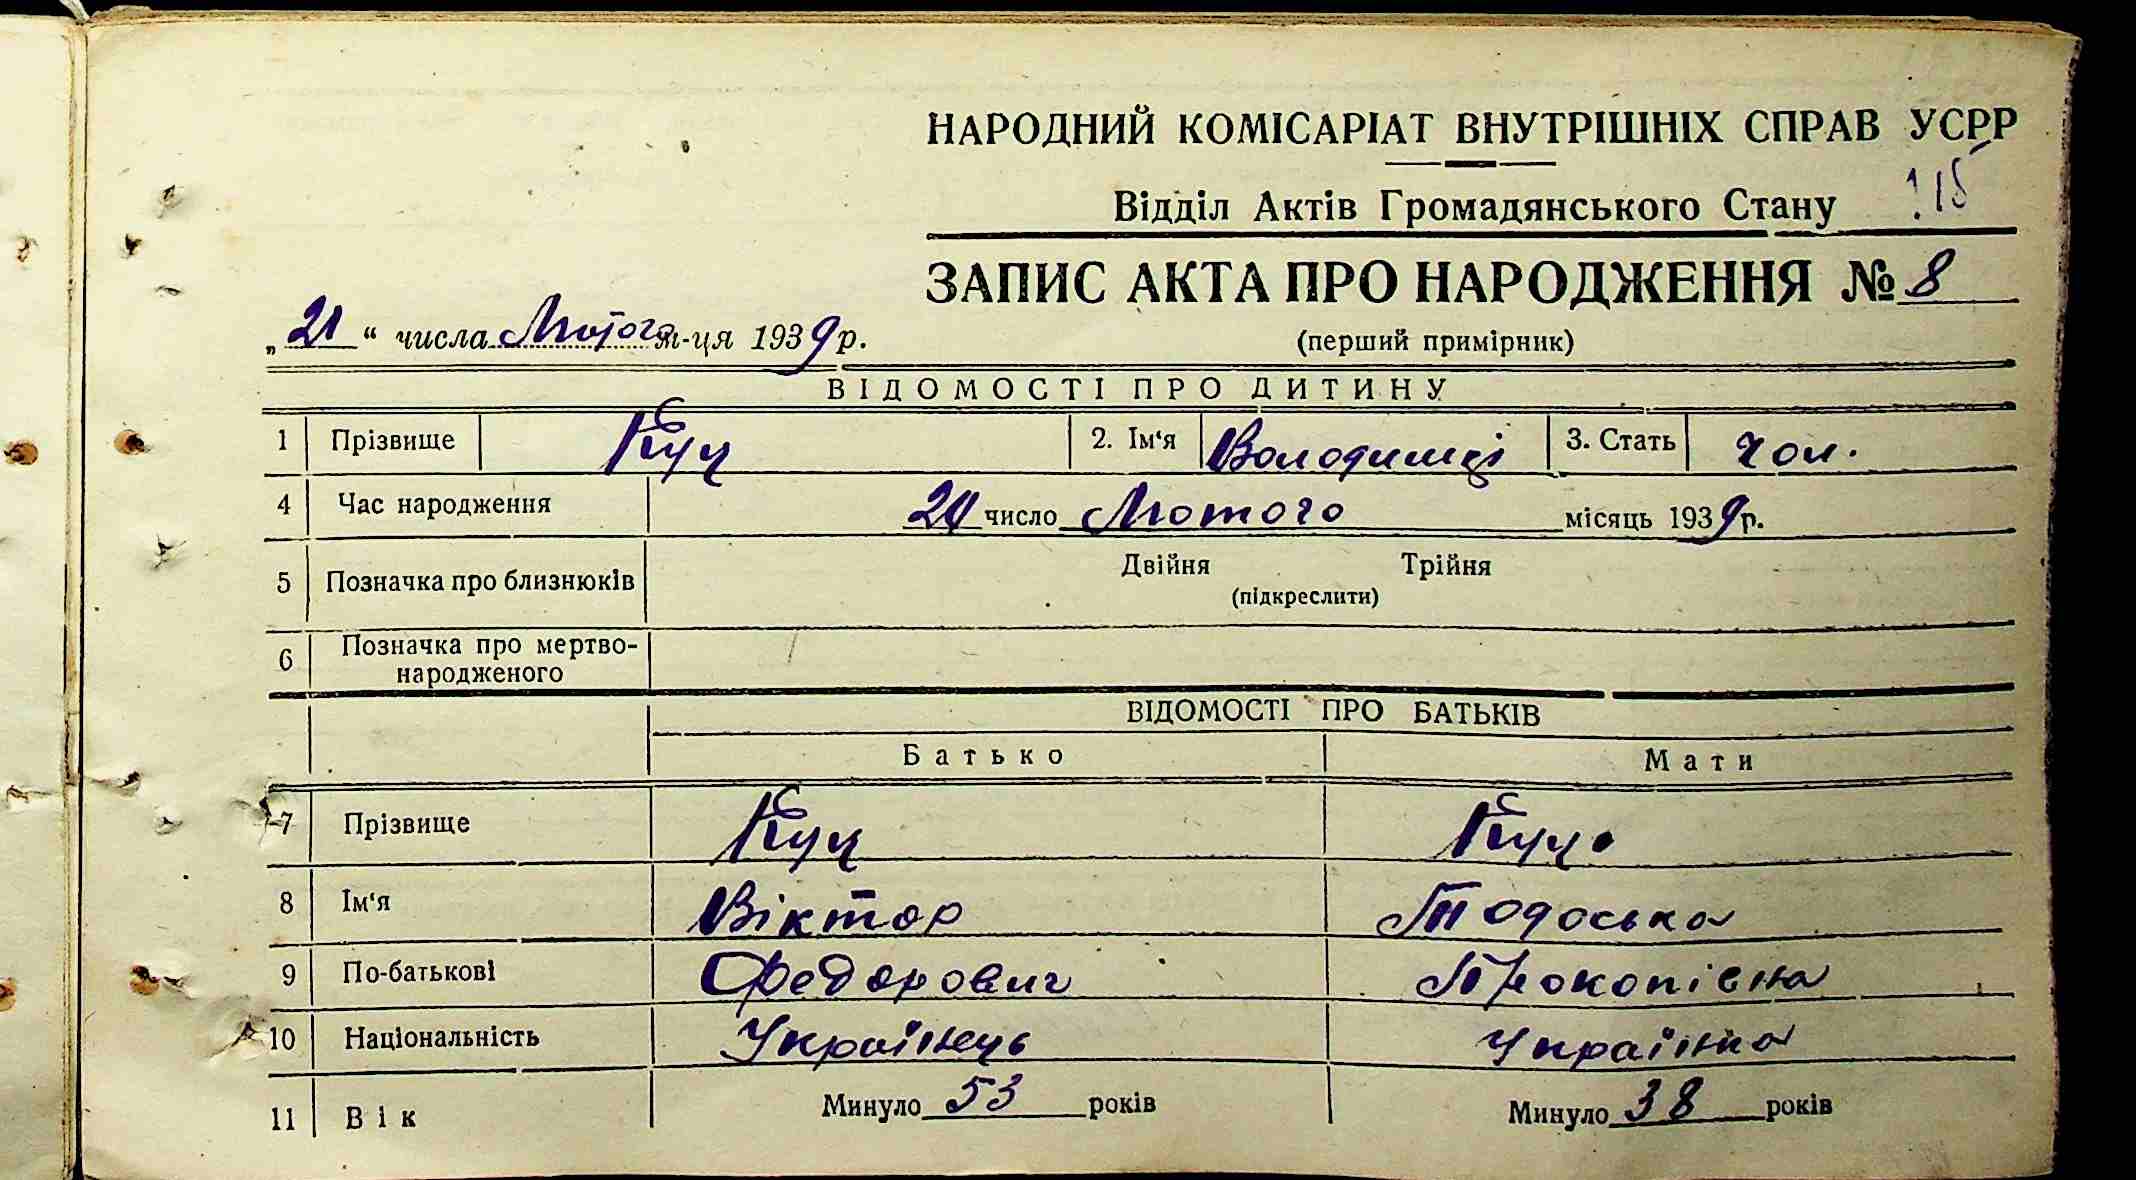 НАРОДНИЙ КОМІСАРІАТ ВНУТРІШНІХ СПРАВ УСРР
115
Відділ Актів Громадянського Стану
ЗАПИС АКТА ПРО НАРОДЖЕННЯ № 8
„21“ числа Лютого м-ця 1939 р.
(перший примірник)
ВІДОМОСТІ ПРО ДИТИНУ
1 Прізвище Куц 2. Ім‘я 3. Стать чол.
4 Час народження число Лютого місяць 1939 р.
5 Позначка про близнюків Двійня Трійня
(підкреслити)
6 Позначка про мертво-
народженого
ВІДОМОСТІ ПРО БАТЬКІВ
Батько Мати
7 Прізвище Куц Куц
8 Ім‘я Віктор Тодоська
9 По-батькові Федорович Прокопівна
10 Національність Українець Українка
11 Вік Минуло 53 років Минуло 38 років